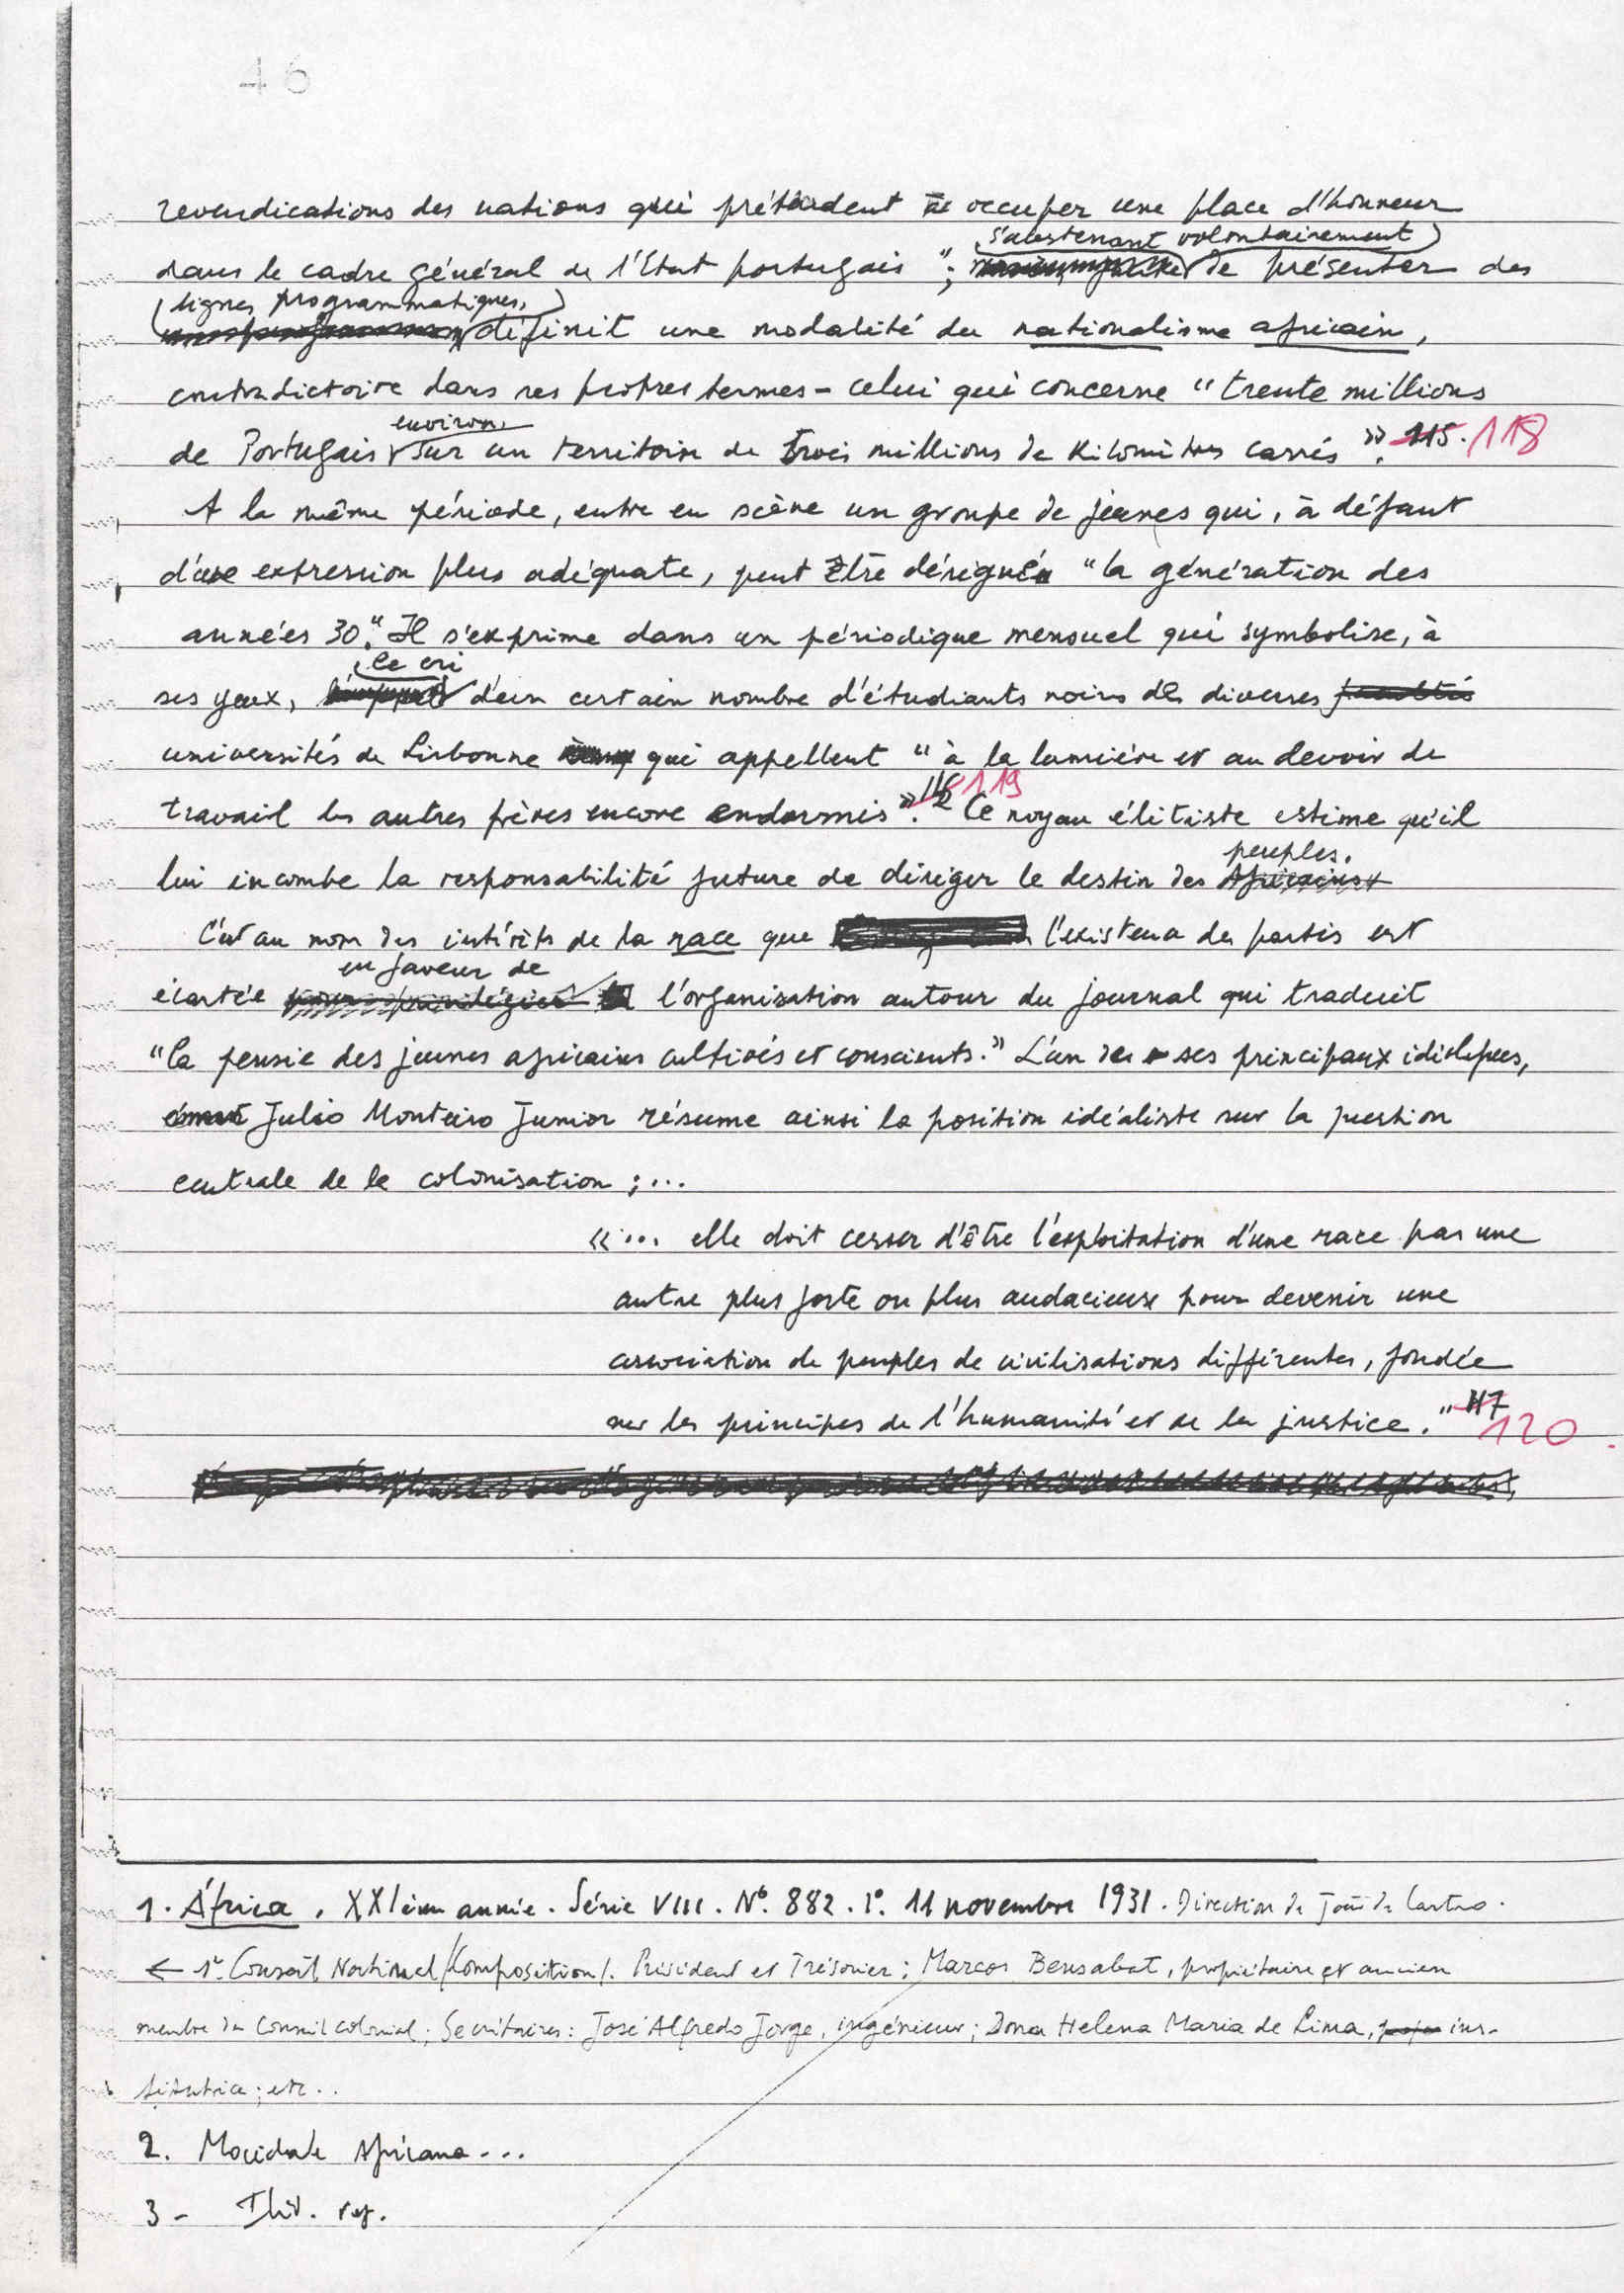 46
revendications des nations qui prétendent occuper une place d'honneur
s'abstenant volontairement
dans le cadre général de l'Etat portugais "; de présenter des
lignes programmatiques,
définit une modalité du nationalisme africain,
contradictoire dans ses propres termes - celui qui concerne "trente millions
environ
de Portugais sur un territoire de trois millions de kilomètres carrés ». 115. 118
A la même période, entre en scène un groupe de jeunes qui, à défaut
d'une expression plus adéquate, peut être désigné "la génération des
années 30." Il s'exprime dans un périodique mensuel qui symbolise, à
le cri
ses yeux, d'un certain nombre d'étudiants noirs des diverses facultés
universités de Lisbonne qui appellent "à la lumière et au devoir de
travail les autres frères encore endormis ». 116 119 Ce noyau élitiste estime qu'il
peuples.
lui incombe la responsabilité future de diriger le destin des Africains
C'est au nom des intérêts de la race que l'existence des partis est
en faveur de
écartée pour privilégier l'organisation autour du journal qui traduit
"la pensée des jeunes africains cultivés et conscients." L'un de ses principaux idéologues,
Julio Monteiro Junior résume ainsi la position idéaliste sur la question
centrale de la colonisation ; ...
« ... elle doit cesser d'être l'exploitation d'une race par une
autre plus forte ou plus audacieuse pour devenir une
association de peuples de civilisations différentes, fondée
sur les principes de l'humanité et de la justice." 117 120
1. África. XXIème année. Série VIII. Nº. 882. 1º. 11 novembre 1931. Direction de João de Castro.
← 1º. Conseil National /Composition/. Président et Trésorier : Marcos Bensabat, propriétaire et ancien
membre du Conseil colonial ; Secrétaires : José Alfredo Jorge, ingénieur ; Dona Helena Maria de Lima, ins-
titutrice ; etc..
2. Mocidade Africana...
3 - Ibid.